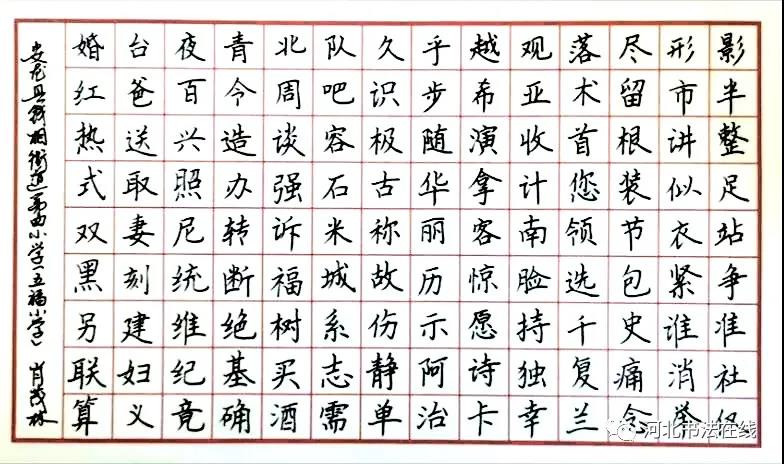 影半整足站争准社仅
形市讲似衣紧谁消举
尽留根装节包史痛念
落术首您领选千复兰
观亚收计南脸持独幸
越希演拿客惊愿诗卡
乎步随华丽历示阿治
久识极古称故伤静单
队吧容石米城系志需
北周谈强诉福树买酒
青令造办转断绝基确
夜百兴照尼统维纪竟
台爸送取妻刻建妇义
婚红热式双黑另联算
安龙县钱相街道曲小学(五福小学) 肖茂林
河北书法在线